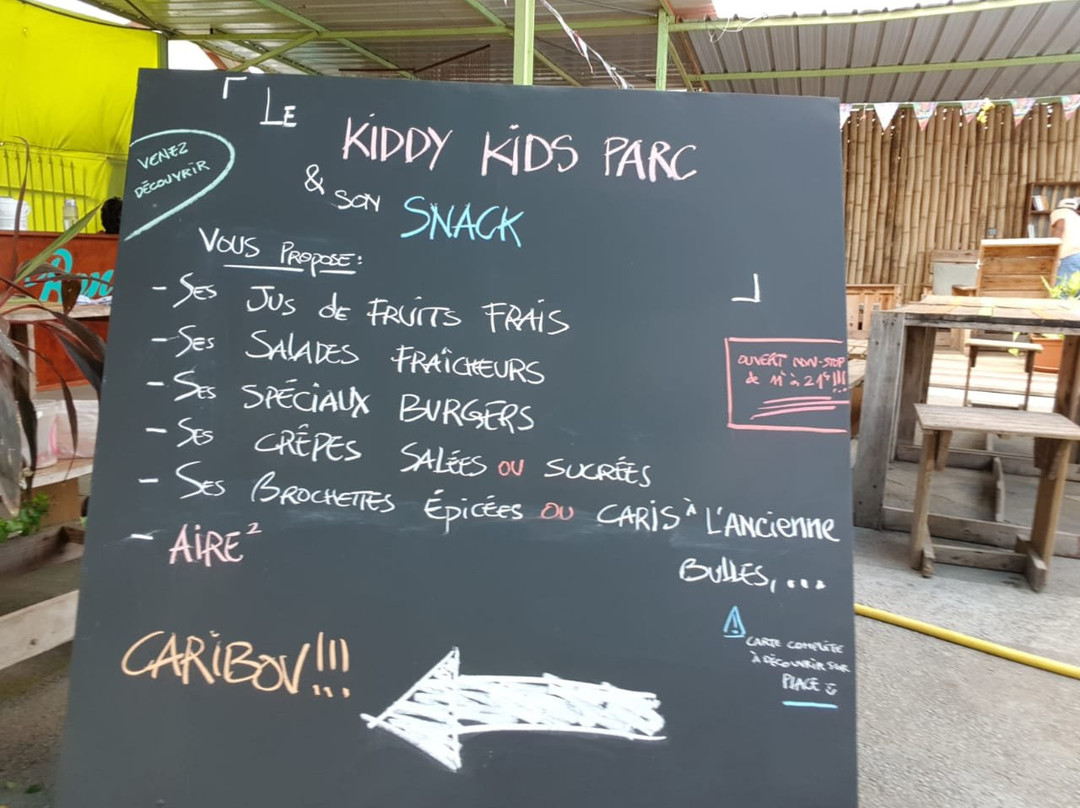 « LE KIDDY KIDS PARC
VENEZ
DÉCOUVRIR
& SON SNACK
VOUS PROPOSE:
- SES JUS de FRUITS FRAIS
- SES SALADES FRAÎCHEURS
- SES SPÉCIAUX BURGERS
- SES CRÊPES SALÉES OU SUCRÉES
- SES BROCHETTES ÉPICÉES OU CARIS À L'ANCIENNE
- AIRE² BULLES,...
OUVERT NON-STOP
de 11h à 21h!!!
CARIBOU!!!
CARTE COMPLÈTE
À DÉCOUVRIR SUR
PLACE